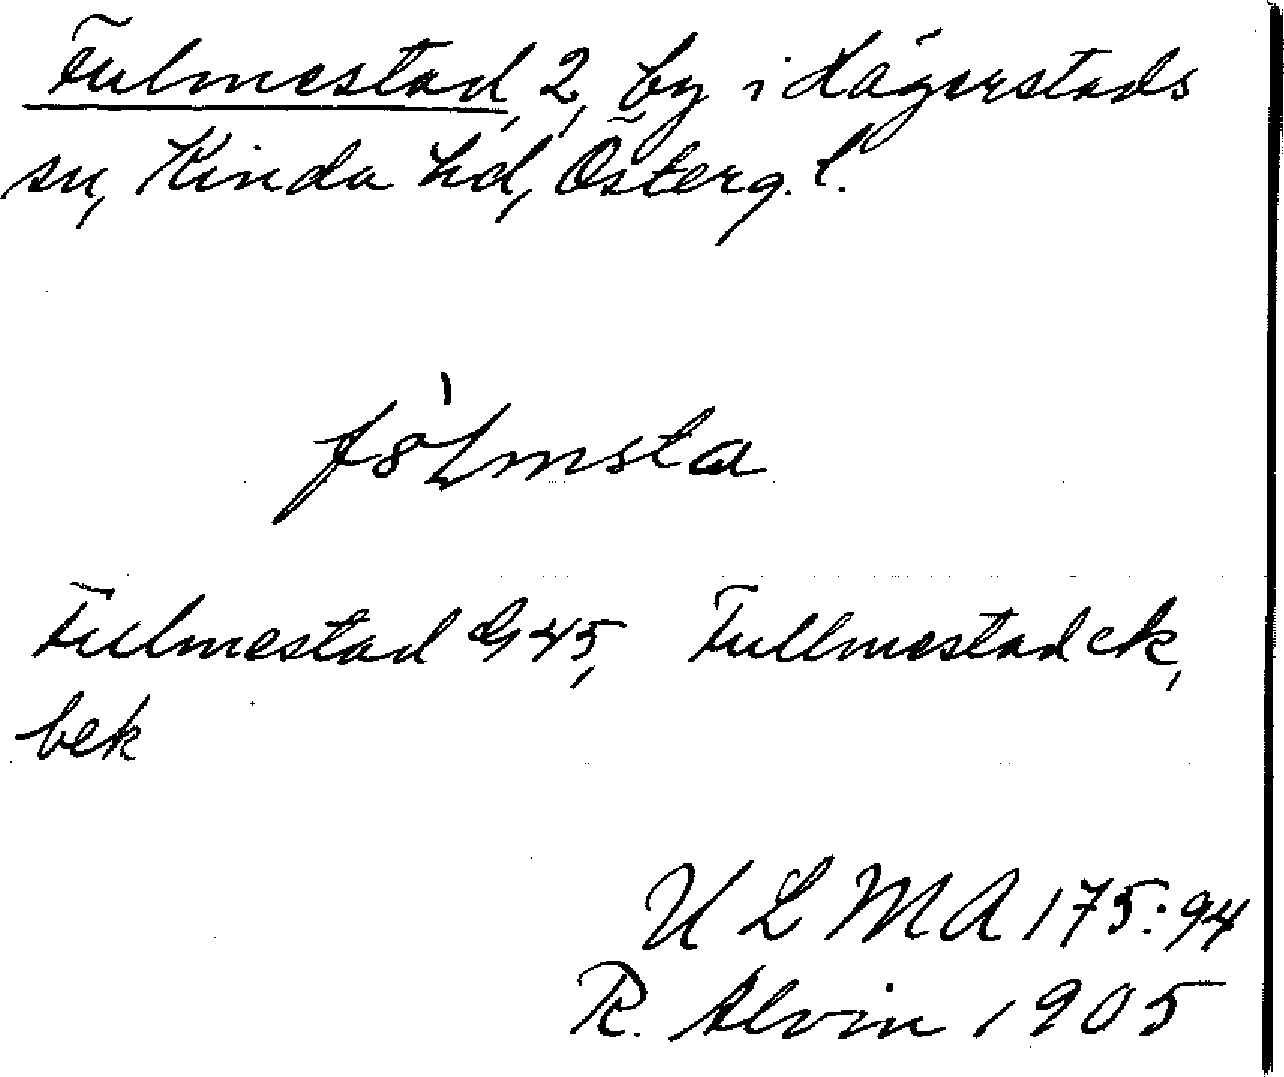 Fulmestad, 2, by i Hägerstads
sn, Kinda hd, Österg. l.
Fulmestad G 45, Fullmestad ek,
bek
ULMA 175:94
R. Alvin 1905